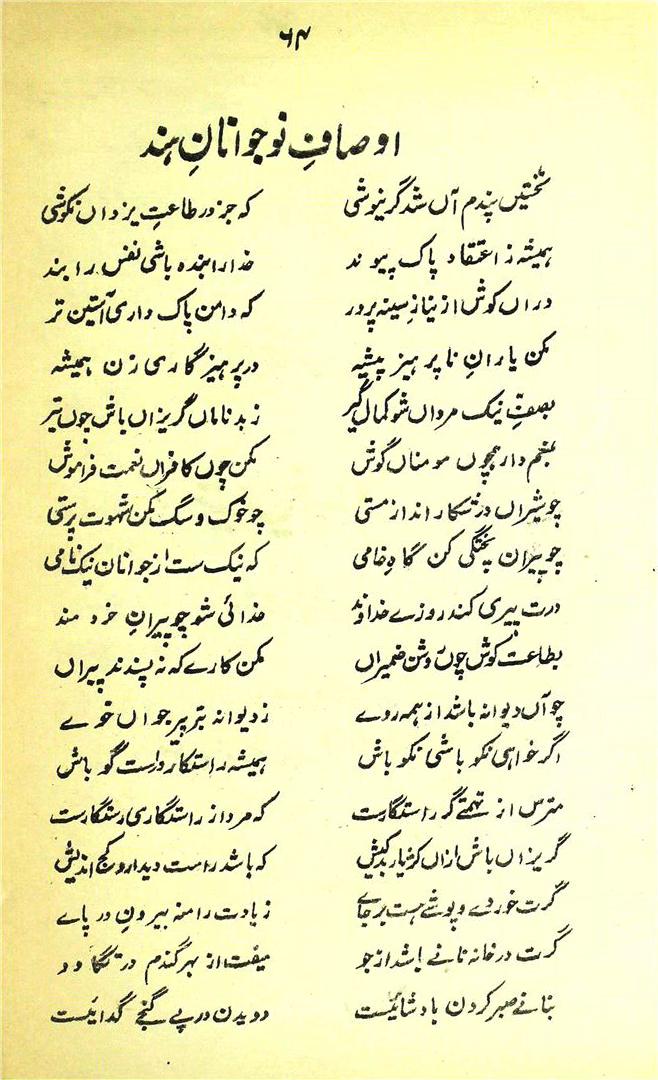 ۶۴
اوصافِ نوجوانانِ ہند
نخستیں پندم آں شد گر نیوشی کہ جز در طاعتِ یزداں نکوشی
ہمیشہ ز اعتقاد پاک پیوند خدا را بندہ باشی نفس را بند
دراں کوش از نیازِ سینہ پرور کہ دامن پاک داری آستین تر
مکن یارانِ نا پرہیز پیشہ در پرہیز گاری زن ہمیشہ
بصفتِ نیک مرداں شو کماں گیر ز بدناماں گریزاں باش چوں تیر
بمنعم دار ہمچوں مومناں گوش مکن چوں کافراں نعمت فراموش
چو شیراں در شکار انداز مستی چو خوک و سگ مکن شہوت پرستی
چو پیران پختگی کن گاہِ خامی کہ نیک ست از جوانان نیک نامی
درت پیری کند روزے خداوند خدائی شو چو پیرانِ خرد مند
بطاعت کوش چوں روشن ضمیراں مکن کارے کہ نہ پسندد پیراں
چو آں دیوانہ باشد از ہمہ روے ز دیوانہ بتر پیر جواں خوے
اگر خواہی نکو باشی نکو باش ہمیشہ راستکار و راست گو باش
مترس از تہمتے گر راستگارست کہ مرد از راستگاری رستگارست
گریزاں باش ازاں کژ یار بدکیش کہ باشد راست دیدار و کج اندیش
گرت خوردے و پوشے ہست بر جاے زیادت را منہ بیرون در پاے
گرت در خانہ نانے باشد از جو میفت از بہر گندم در تگا و دو
بنانے صبر کردن بادشائیست دویدن در پے گنجے گدائیست